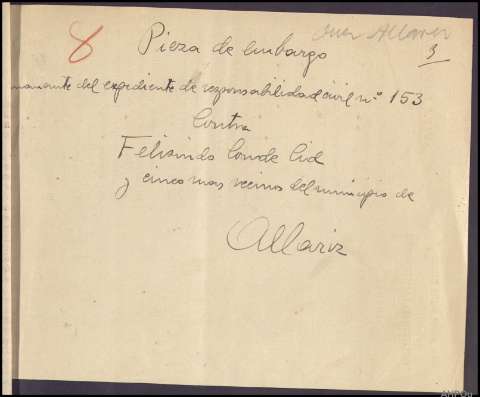 8
Pieza de embargo
3
manante del expediente de responsabilidad civil nº 153
Contra
Felisindo Conde Cid
y cinco mas vecinos del municipio de
Allariz
AHPOu